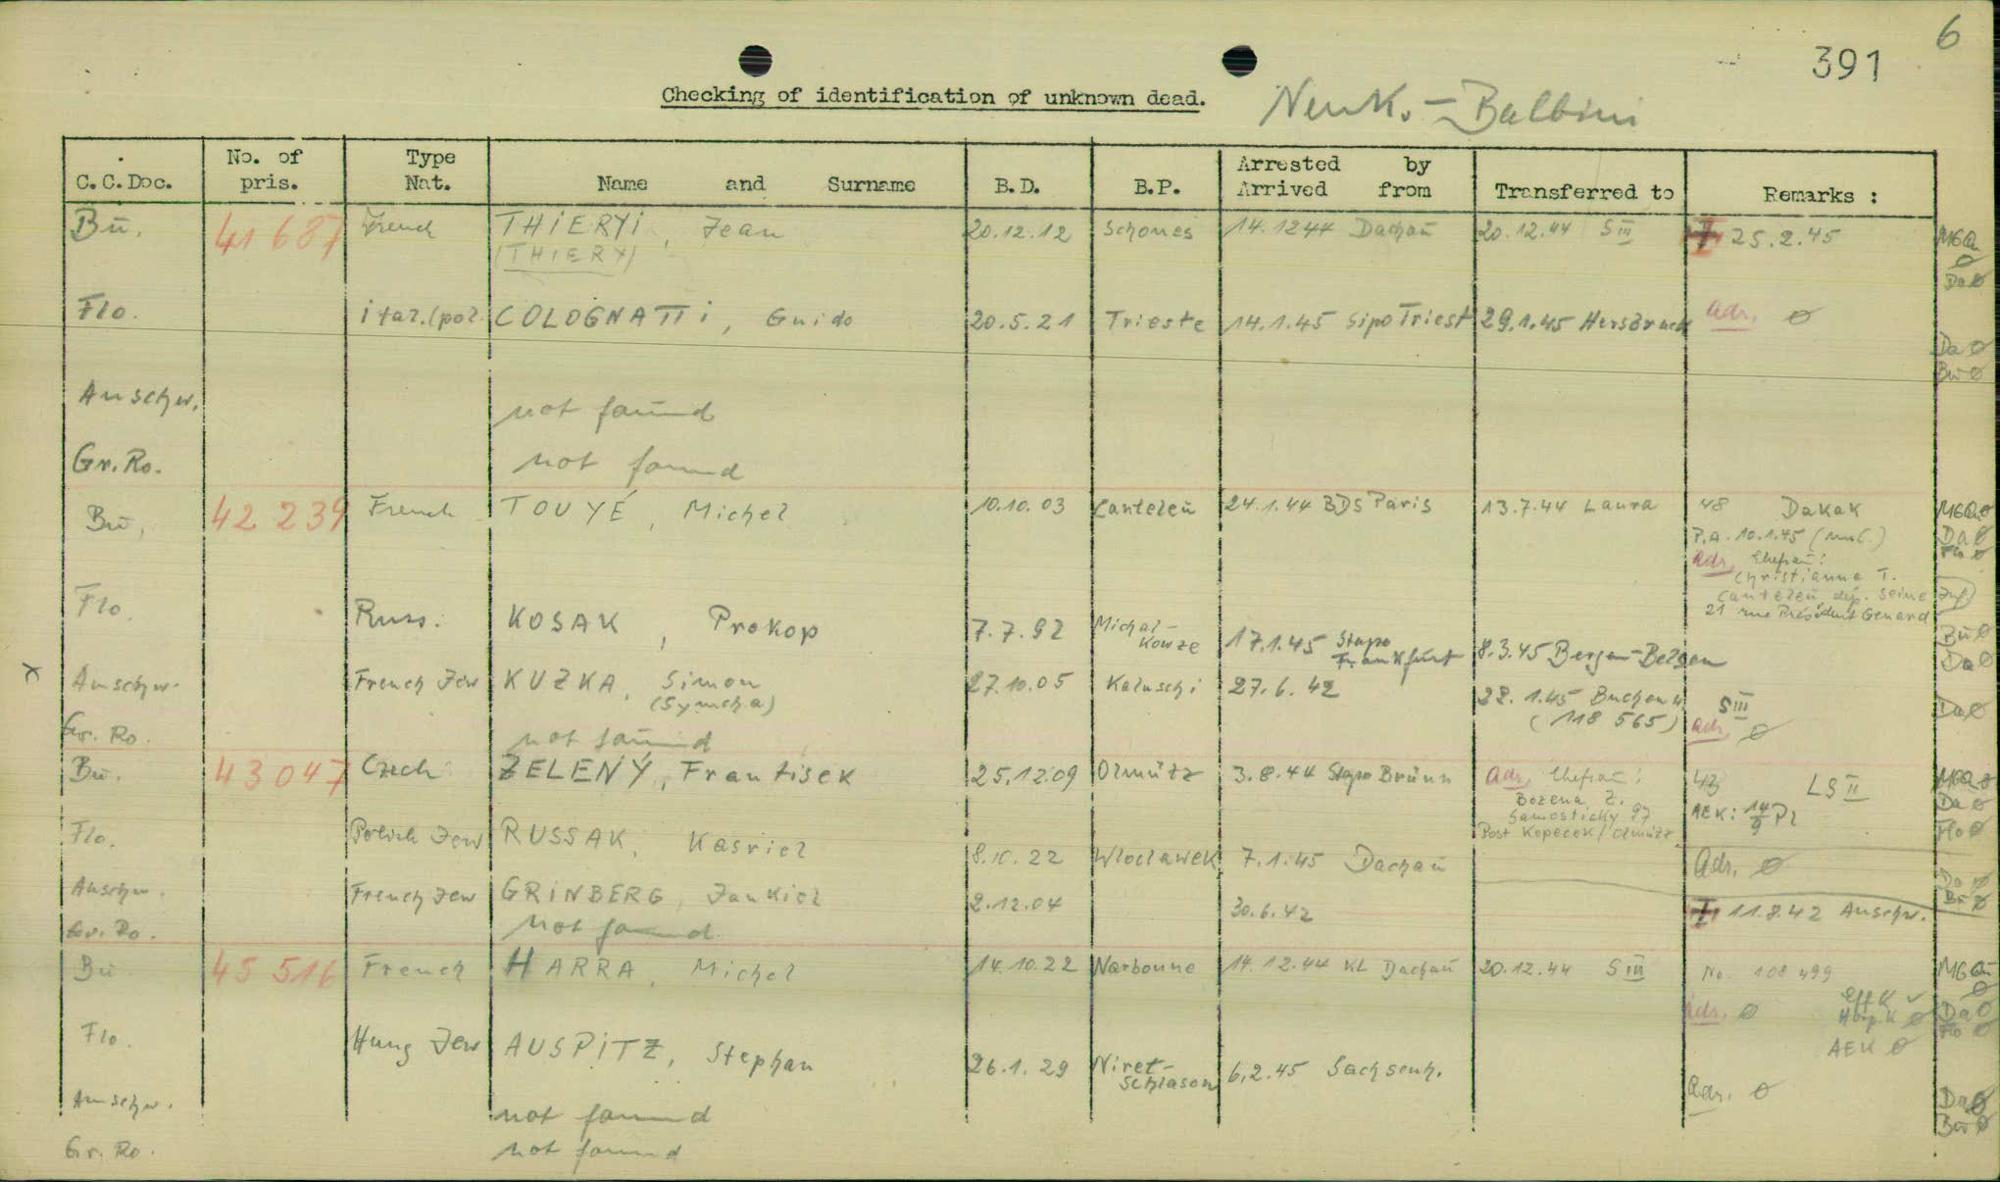 6
391
Checking of identification of unknown dead. Neuk. - Balbini
C.C.Doc. No. of pris. Type Nat. Name and Surname B.D. B.P. Arrested by Arrived from Transferred to Remarks :
Bu. 41687 French THIERYI, Jean 20.12.12 Schones 14.1244 Dachau 20.12.44 S III 25.2.45
(THIERY)
Flo. ital.(pol. COLOGNATTI, Guido 20.5.21 Trieste 14.1.45 Sipo Triest 29.1.45 Hersbruck Adr. ø
Da ø
Bu ø
Auschw. not found
Gr. Ro. not found
Bu. 42 239 French TOUYÉ, Michel 10.10.03 Canteleu 24.1.44 BDS Paris 13.7.44 Laura 48 DaKaK
P.A. 10.1.45
Adr. Ehefrau:
Christianna T.
Canteleu dep. Seine
21 rue Président Genard
Flo. Russ. KOSAK, Prokop 7.7.92 Michal-kowze 17.1.45 Stapo Frankfurt 8.3.45 Bergen-Belsen
Bu ø
Da ø
x Auschw. French Jew KUZKA, Simon 27.10.05 Kaluschi 27.6.42 22. 1.45 Buchenw S III
(Symcha) (118 565) Adr. ø
Da ø
Gr. Ro. not found
Bu. 43047 Czech ZELENÝ, Frantisek 25.12.09 Olmütz 3.8.44 Stapo Brünn Adr. Ehefrau: LS II
Bozena Z.
Samosticky 97
Post Kopecek/Olmütz
AEK: 14/9 Pl
Flo. Polish Jew RUSSAK, Kasriel 8.10.22 Wloclawek 7.1.45 Dachau Adr. ø
Auschw. French Jew GRINBERG, Jankiel 2.12.04 30.6.42 11.8.42 Auschw.
Gr. Ro. not found
Bu 45 516 French HARRA, Michel 14.10.22 Narbonne 14.12.44 KL Dachau 20.12.44 S III No. 108 499
Adr. ø Eff K ✓
AEK ø
Flo. Hung Jew AUSPITZ, Stephan 26.1.29 Niret-Schlason 6.2.45 Sachsenh. Adr. ø
Auschw. not found
Da ø
Bu ø
Gr. Ro. not found